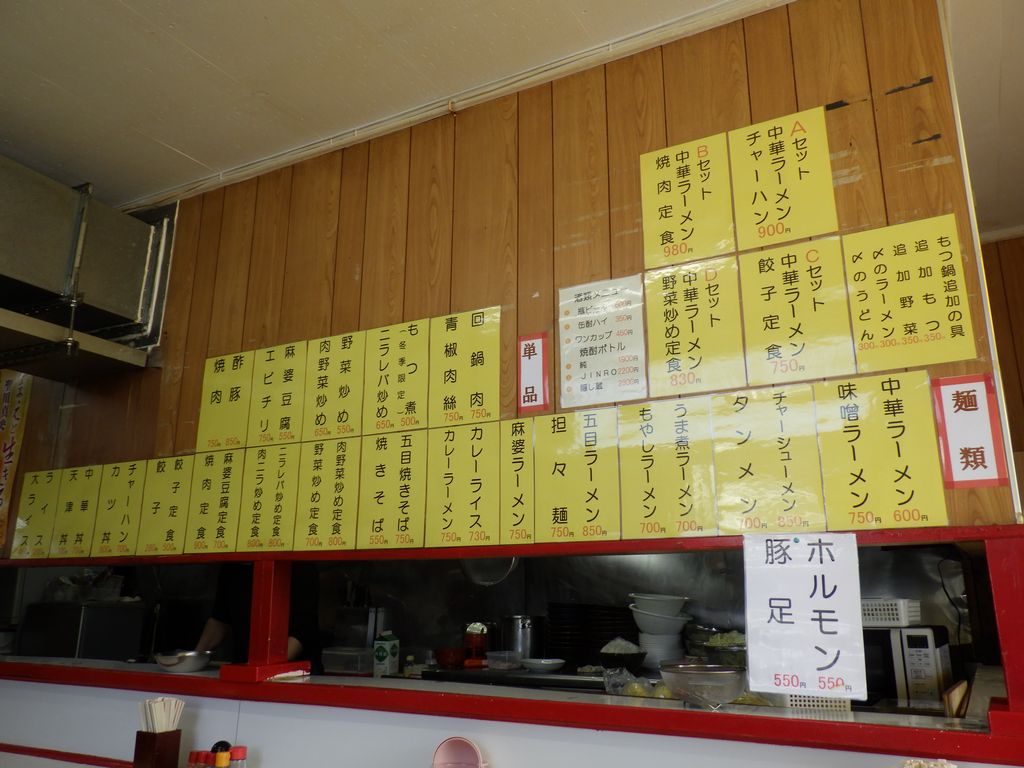 Aセット
中華ラーメン
チャーハン
900円
Bセット
中華ラーメン
焼肉定食
980円
もつ鍋追加の具
追加もつ
350円
追加野菜
350円
〆のラーメン
300円
〆のうどん
300円
Cセット
中華ラーメン
餃子定食
750円
Dセット
中華ラーメン
野菜炒め定食
830円
酒類メニュー
缶酎ハイ 350円
ワンカップ 450円
焼酎ボトル
純 1900円
JINRO 2200円
隠し蔵 2300円
単品
回鍋肉
750円
青椒肉絲
750円
もつ煮
(冬季限定)
500円
ニラレバ炒め
650円
野菜炒め
550円
肉野菜炒め
650円
麻婆豆腐
550円
エビチリ
750円
酢豚
850円
焼肉
750円
麺類
中華ラーメン
600円
味噌ラーメン
750円
チャーシューメン
850円
タンメン
700円
うま煮ラーメン
700円
もやしラーメン
700円
五目ラーメン
850円
担々麺
750円
麻婆ラーメン
750円
カレーライス
730円
カレーラーメン
750円
五目焼きそば
750円
焼きそば
550円
肉野菜炒め定食
800円
野菜炒め定食
700円
ニラレバ炒め定食
800円
肉ニラ炒め定食
800円
麻婆豆腐定食
700円
焼肉定食
900円
餃子定食
餃子
チャーハン
カツ丼
中華丼
天津丼
ライス
大ライス
ホルモン
550円
豚足
550円